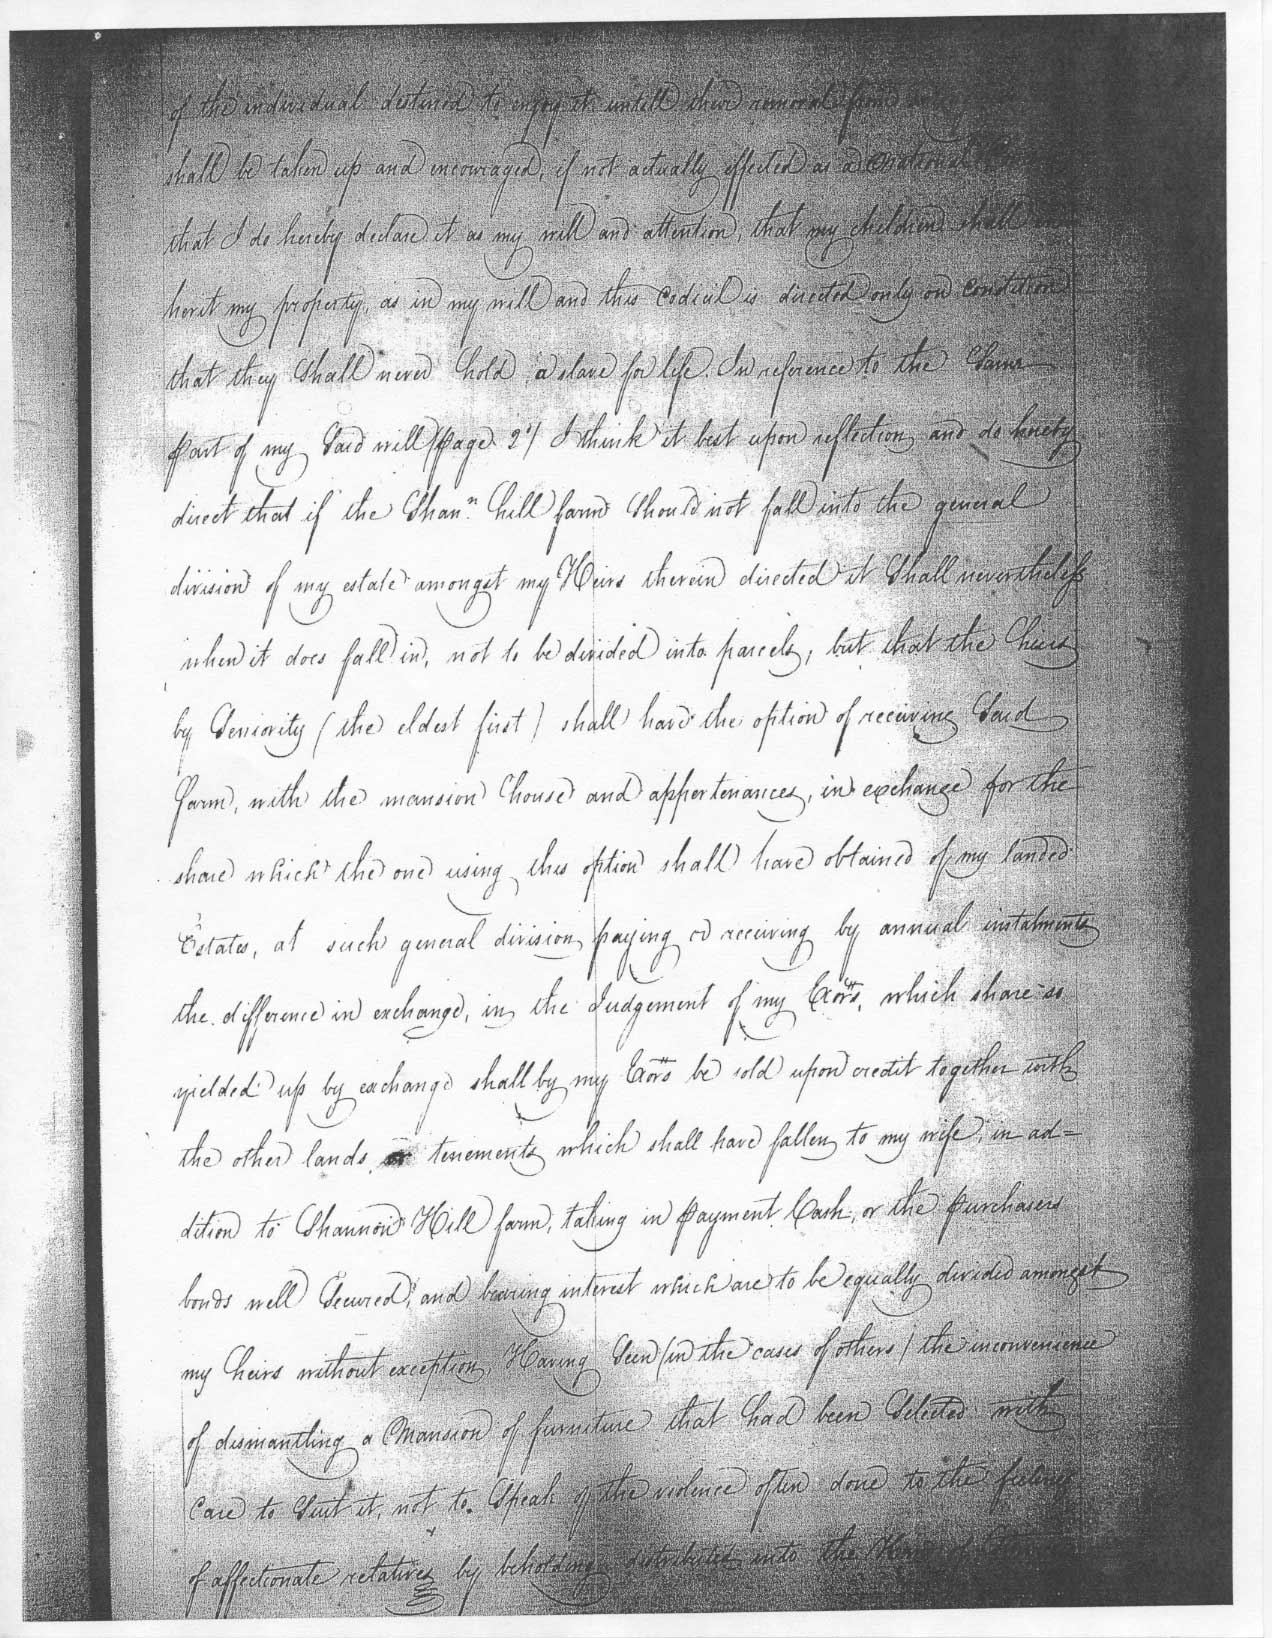 of the individual destined to enjoy it untill their removal from
shall be taken up and encouraged, if not actually effected as a national
that I do hereby declare it as my will and attention, that my children shall in
herit my property, as in my will and this Codicil is directed only on condition
that they Shall never hold a slave for life. In reference to the Same
part of my Said will (page 2d) I think it best upon reflection and do hereby
direct that if the Shann. hill farm Should not fall into the general
division of my estate amongst my Heirs therein directed it Shall nevertheless
when it does fall in, not to be divided into parcels, but that the heirs
by Seniority (the eldest first) shall have the option of receiving Said
Farm, with the mansion house and appertenances, in exchange for the
share which the one using this option shall have obtained of my landed
Estates, at such general division paying or receiving by annual instalments
the difference in exchange, in the Judgement of my Exors, which share so
yielded up by exchange shall by my Exors be sold upon credit together with
the other lands or tenements which shall have fallen to my wife, in ad=
dition to Shannon Hill farm, taking in Payment Cash, or the Purchasers
bonds well Secured, and bearing interest which are to be equally divided amongst
my heirs without exception. Having Seen (in the cases of others) the inconvenience
of dismantling a Mansion of furniture that had been Selected with
Care to Suit it, not to Speak of the violence often done to the feelings
of affectionate relatives by beholding distributed into the